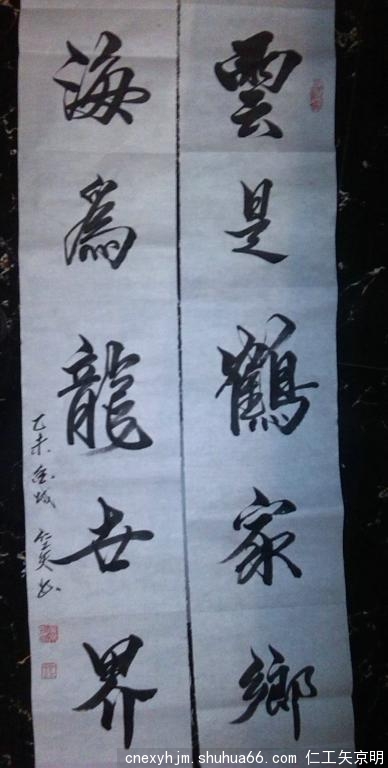 雲是鶴家鄉
海為龍世界
乙未
cnexyhjm.shuhua66.com 仁工矢京明